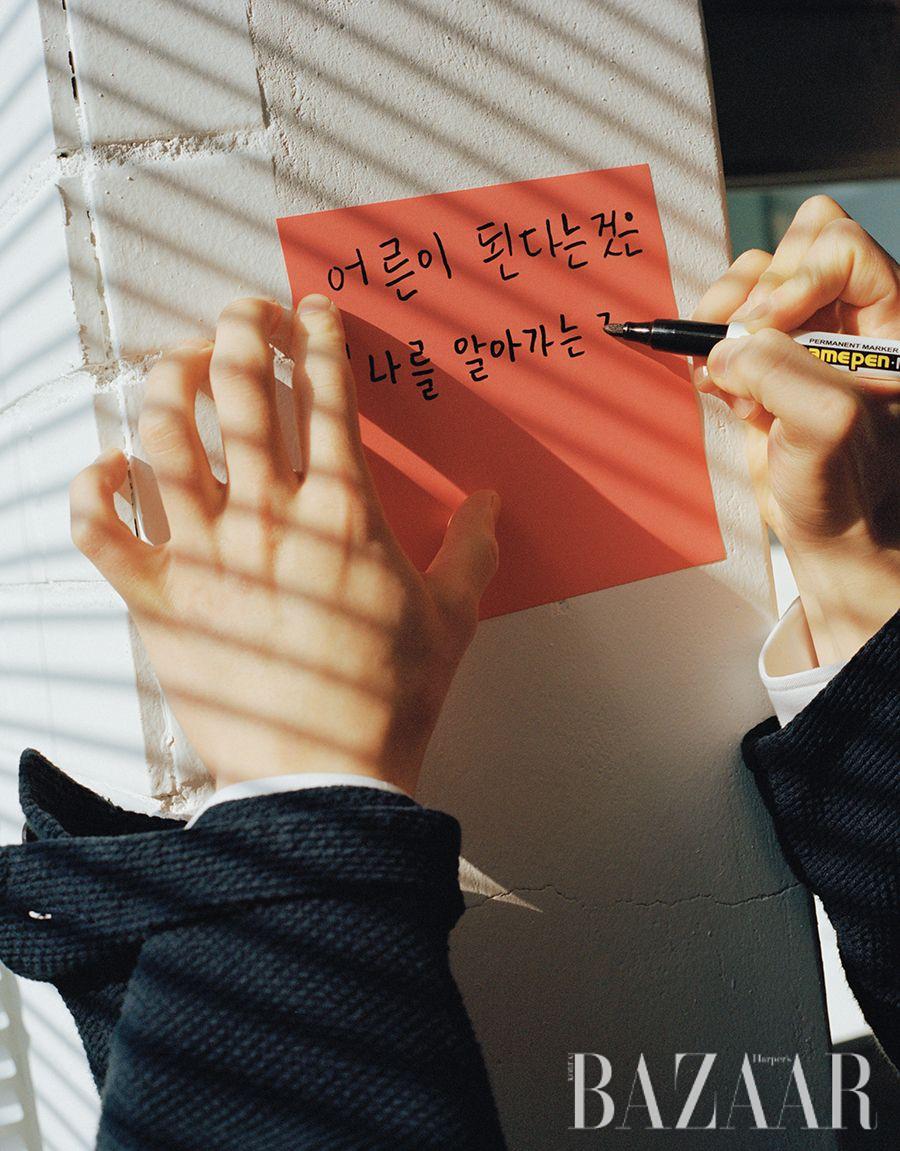 어른이 된다는것은
나를 알아가는
PERMANENT MARKER
AMEPEN
KOREA
Harper's
BAZAAR